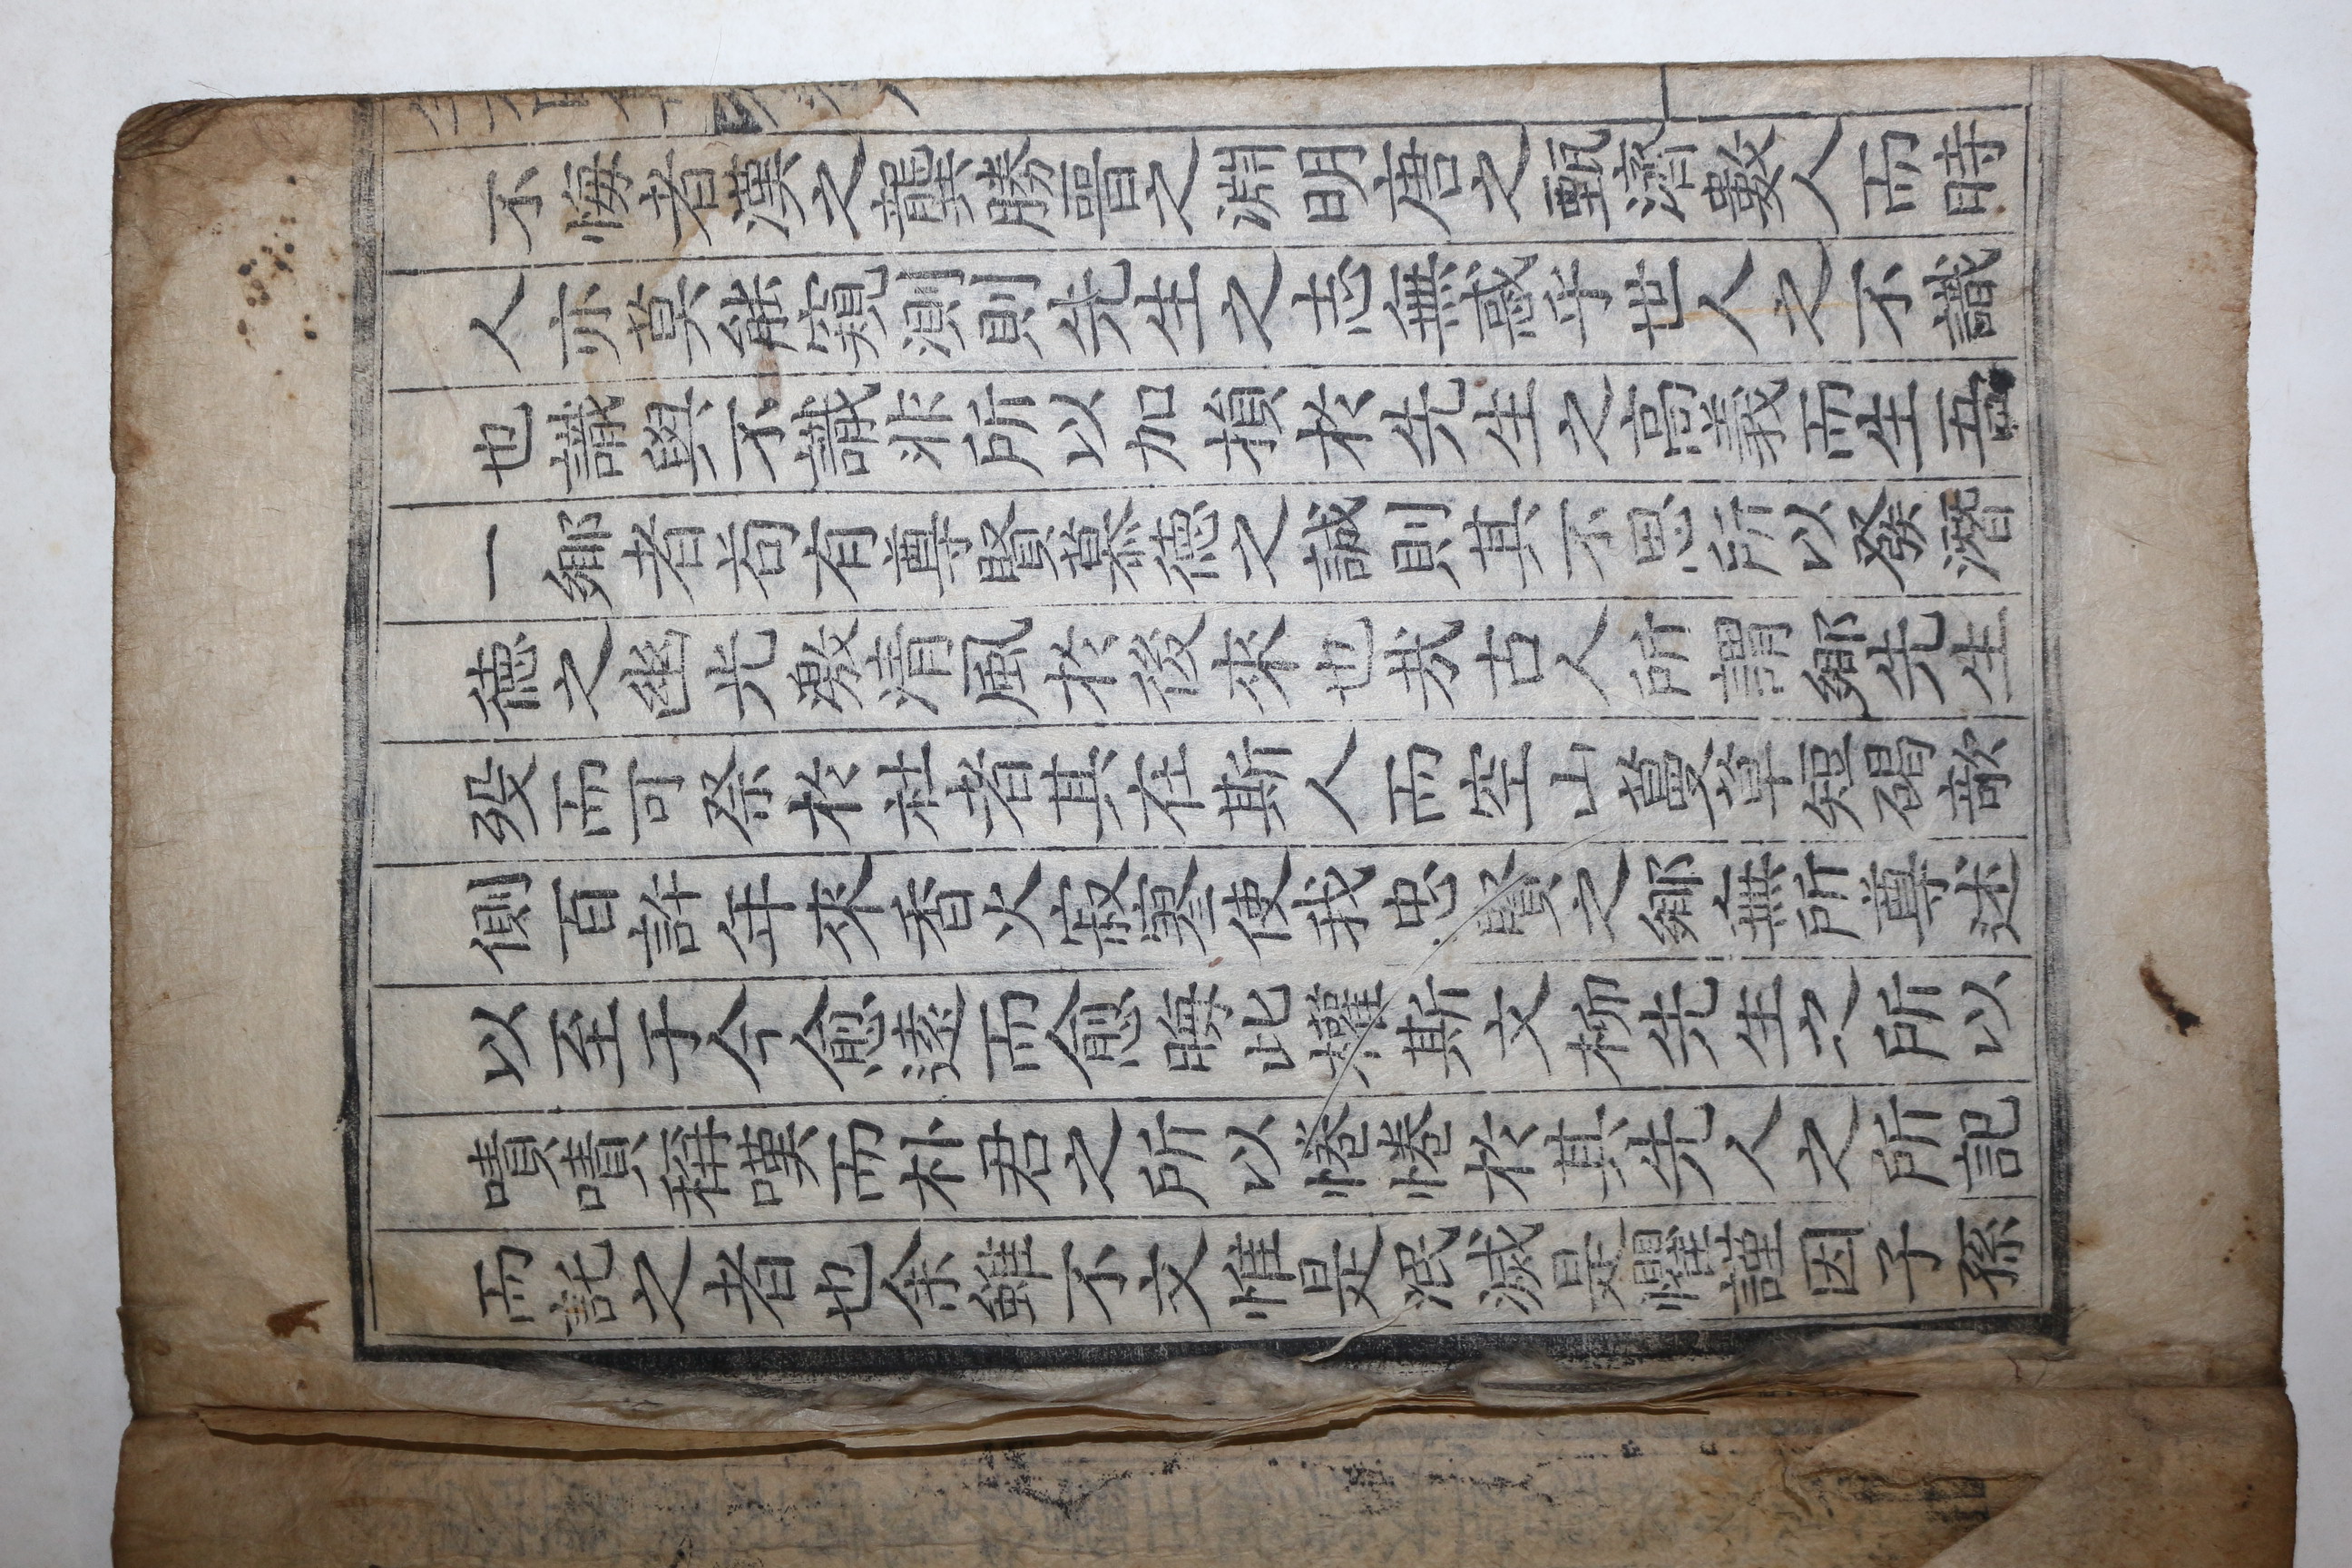 不悔者漢之龔勝晉之淵明唐之甄濟數人而時
人亦莫能窺測則先生之志無惑乎世人之不識
也識與不識非所以加損於先生之高義而生吾
一鄉者苟有尊賢慕德之誠則其不思所以發潛
德之幽光激清風於後來也哉古人所謂鄉先生
歿而可祭於社者其在斯人而空山蔓草短碣欹
側百許年來香火寂寥使我忠賢之鄉無所尊述
以至于今愈遠而愈晦此權斯文柳先生之所以
嘖嘖稱嘆而朴君之所以惓惓於其先人之所記
而託之者也余雖不文惟是泯滅是懼謹因子孫